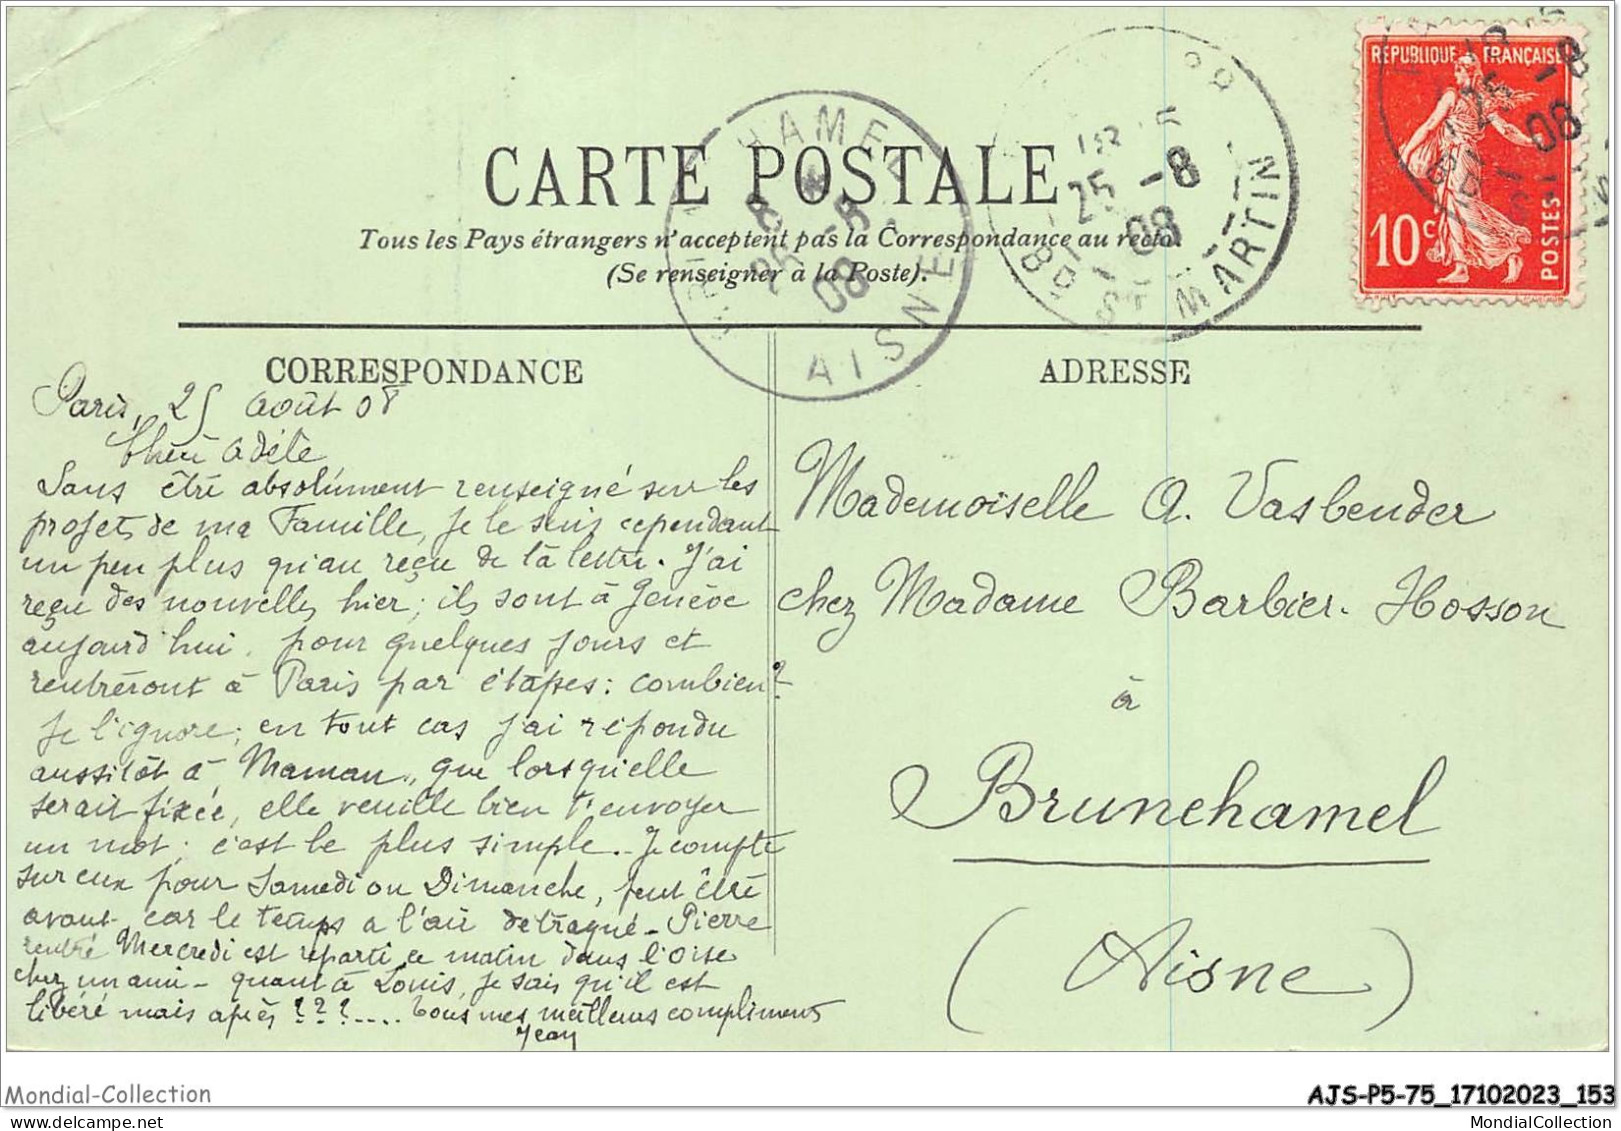 CARTE POSTALE
Tous les Pays étrangers n'acceptent pas la Correspondance au recto.
(Se renseigner à la Poste).
RÉPUBLIQUE FRANÇAISE
10c
POSTES
HAMEL
8
25 -8
08
AISNE
25 -8
08
BD ST MARTIN
25 -8
08
CORRESPONDANCE
ADRESSE
Paris, 25 Août 08
Chère Adèle
Sans être absolument renseigné sur les
projets de ma Famille, je le suis cependant
un peu plus qu'au reçu de ta lettre. J'ai
reçu des nouvelles hier; ils sont à Genève
aujourd'hui, pour quelques jours et
rentreront à Paris par étapes: combien?
Je l'ignore; en tout cas j'ai répondu
aussitôt à Maman, que lorsqu'elle
serait fixée, elle veuille bien t'envoyer
un mot; c'est le plus simple. Je compte
sur eux pour Samedi ou Dimanche, peut être
avant, car le temps a l'air détraqué - Pierre
rentré Mercredi est reparti ce matin dans l'Oise
chez un ami - quant à Louis, je sais qu'il est
libéré mais après ? ? ? .... Tous mes meilleurs compliments
Jean
Mademoiselle A. Vasbender
chez Madame Barbier-Hosson
à
Brunehamel
(Aisne)
Mondial-Collection
AJS-P5-75_17102023_153
MondialCollection